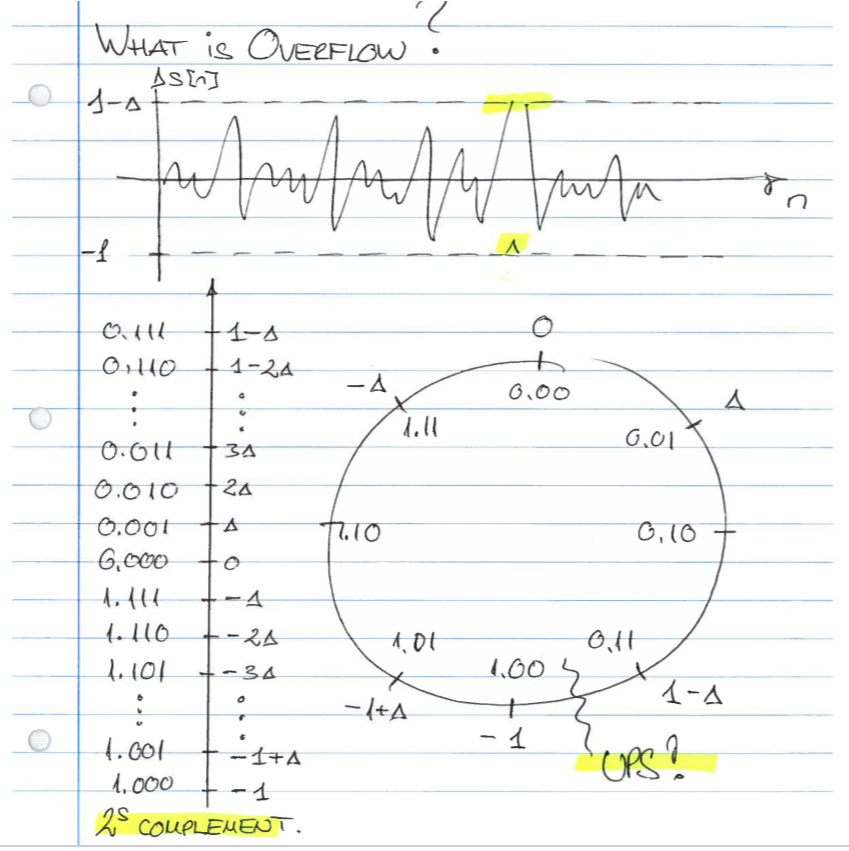 WHAT is OVERFLOW ?
ΔS[n]
1-Δ
n
-1
Λ
0.111 1-Δ
0.110 1-2Δ
0.011 3Δ
0.010 2Δ
0.001 Δ
0.000 0
1.111 -Δ
1.110 -2Δ
1.101 -3Δ
1.001 -1+Δ
1.000 -1
2S COMPLEMENT.
0
0.00
-Δ
1.11
Δ
0.01
1.10
0.10
1.01
-1+Δ
1.00
-1
0.11
1-Δ
UPS?